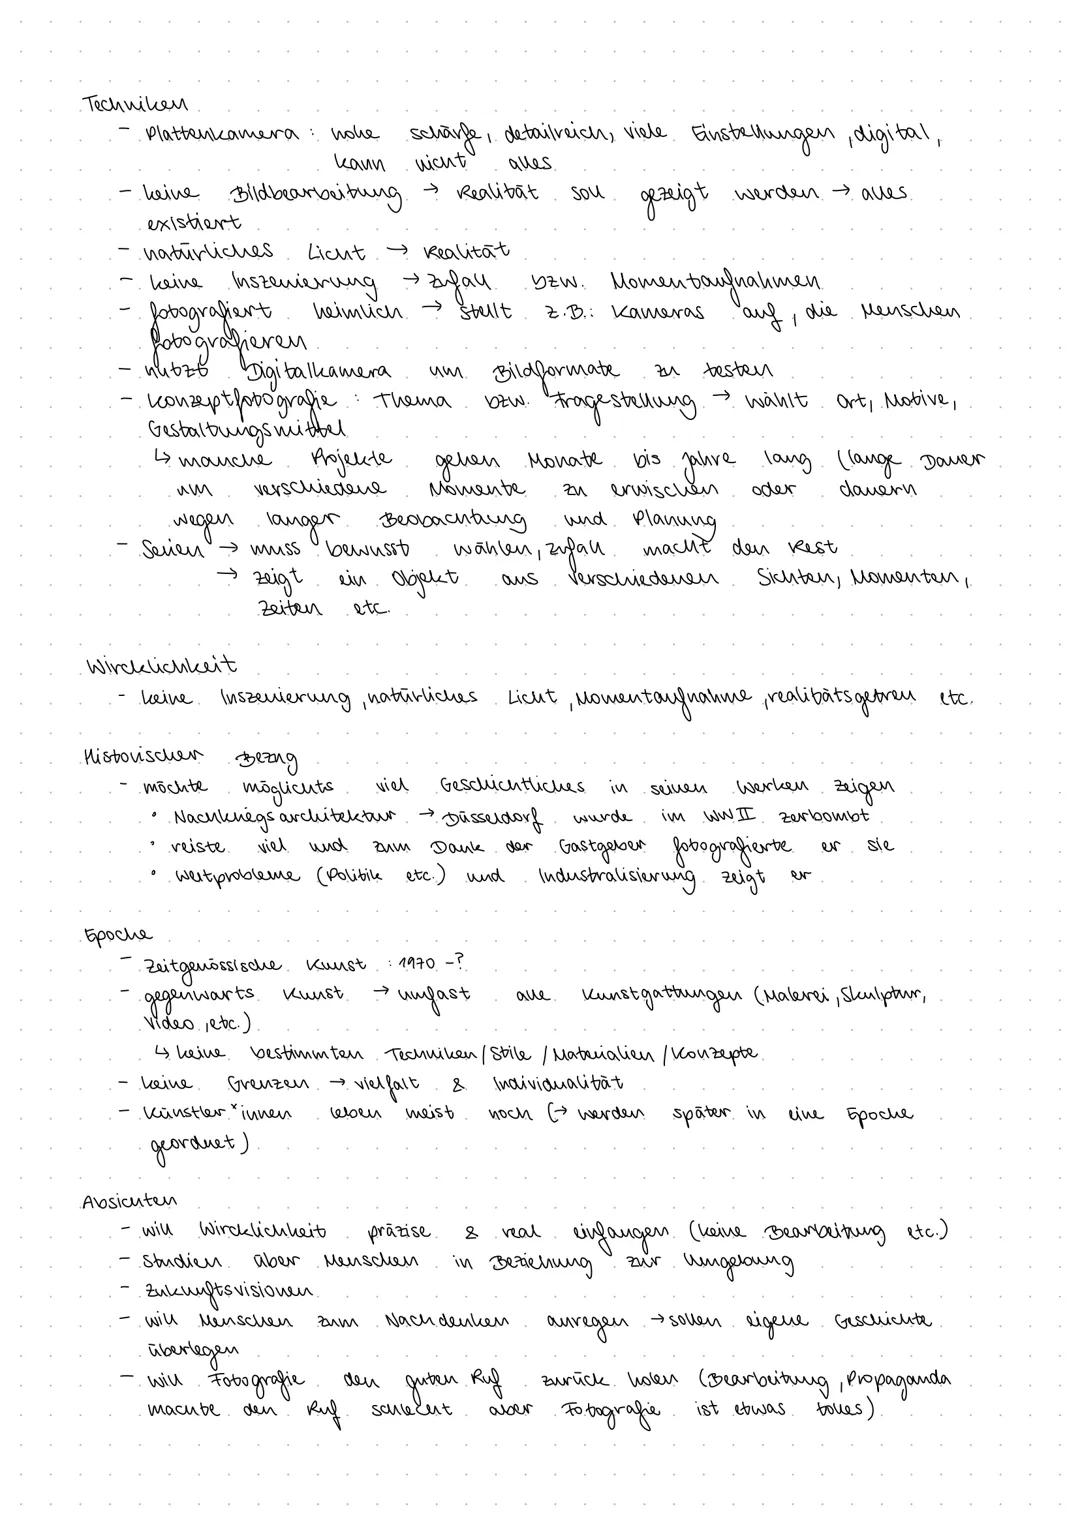 Techniken
- Plattenkamera : hohe schärfe, detailreich, viele Einstellungen, digital,
kann nicht alles
- keine Bildbearbeitung → Realität soll gezeigt werden → alles
existiert
- natürliches Licht → Realität
- keine Inszenierung → Zufall bzw. Momentaufnahmen
- fotografiert heimlich → stellt z.B.: Kameras auf, die Menschen
fotografieren
- nutzt Digitalkamera um Bildformate zu testen
- Konzeptfotografie : Thema bzw. Fragestellung → wählt Ort, Motive,
Gestaltungsmittel
↳ manche Projekte gehen Monate bis Jahre lang (lange Dauer
um verschiedene Momente zu erwischen oder dauern
wegen langer Beobachtung und Planung
- Serien → muss bewusst wählen, Zufall macht den Rest
→ zeigt ein Objekt aus verschiedenen Sichten, Momenten,
Zeiten etc.
Wircklichkeit
- keine Inszenierung, natürliches Licht, Momentaufnahme, realitätsgetreu etc.
Historischer Bezug
- möchte möglichts viel Geschichtliches in seinen Werken zeigen
• Nachkriegsarchitektur → Düsseldorf wurde im WWII zerbombt
• reiste viel und zum Dank der Gastgeber fotografierte er sie
• Weltprobleme (Politik etc.) und Industralisierung zeigt er
Epoche
- Zeitgenössische Kunst : 1970 - ?
- gegenwarts Kunst → umfast alle Kunstgattungen (Malerei, Skulptur,
Video, etc.)
↳ keine bestimmten Techniken / Stile / Materialien / Konzepte
- keine Grenzen → vielfalt & Individualität
- Künstler*innen leben meist noch (→ werden später in eine Epoche
geordnet)
Absichten
- will Wircklichkeit präzise & real einfangen (keine Bearbeitung etc.)
- Studien über Menschen in Beziehung zur Umgebung
- Zukunftsvisionen
- will Menschen zum Nachdenken anregen → sollen eigene Geschichte
überlegen
- will Fotografie den guten Ruf zurück holen (Bearbeitung, Propaganda
machte den Ruf schlecht aber Fotografie ist etwas tolles)